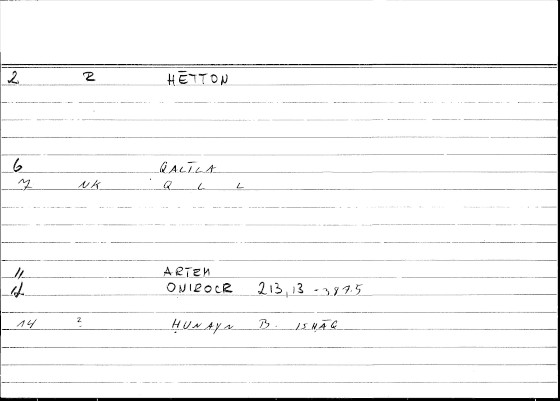 2 R HĒTTON
6 QALĪLA
7 NK Q L L
11 ARTEM
12 ONIROCR 213,13 - 387.5
14 ? HUNAYN B. ISHĀQ